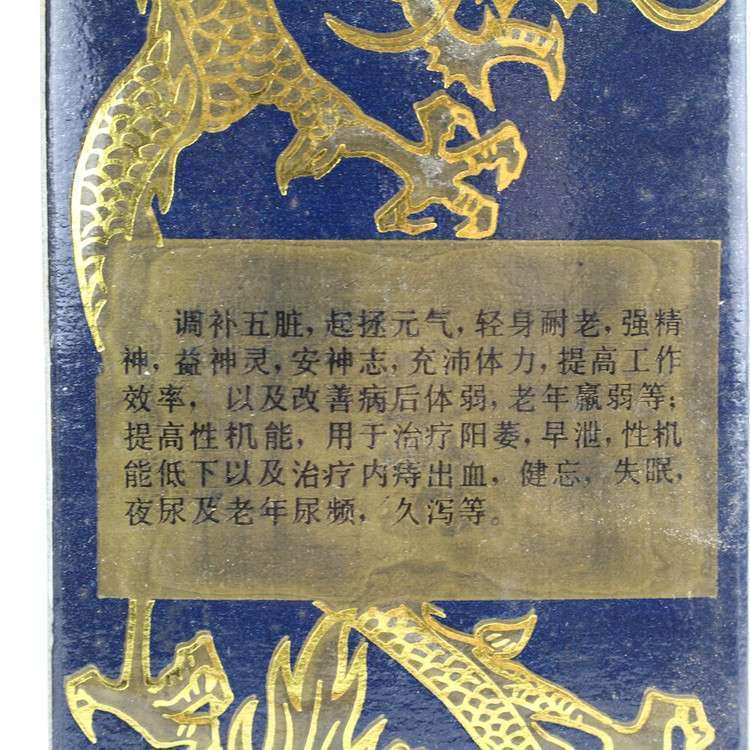 调补五脏，起拯元气，轻身耐老，强精
神，益神灵，安神志，充沛体力，提高工作
效率，以及改善病后体弱，老年羸弱等；
提高性机能，用于治疗阳萎，早泄，性机
能低下以及治疗内痔出血，健忘，失眠，
夜尿及老年尿频，久泻等。